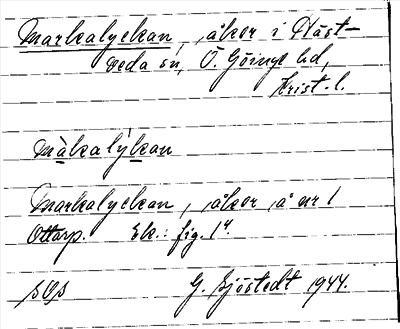 Markalyckan, åker i Häst-
veda sn, Ö. Göinge hd,
Krist. l.
màkalýkan
Markalyckan, åker å nr 1
Ottarp. Ek.: fig. 1
G. Sjöstedt 1944.